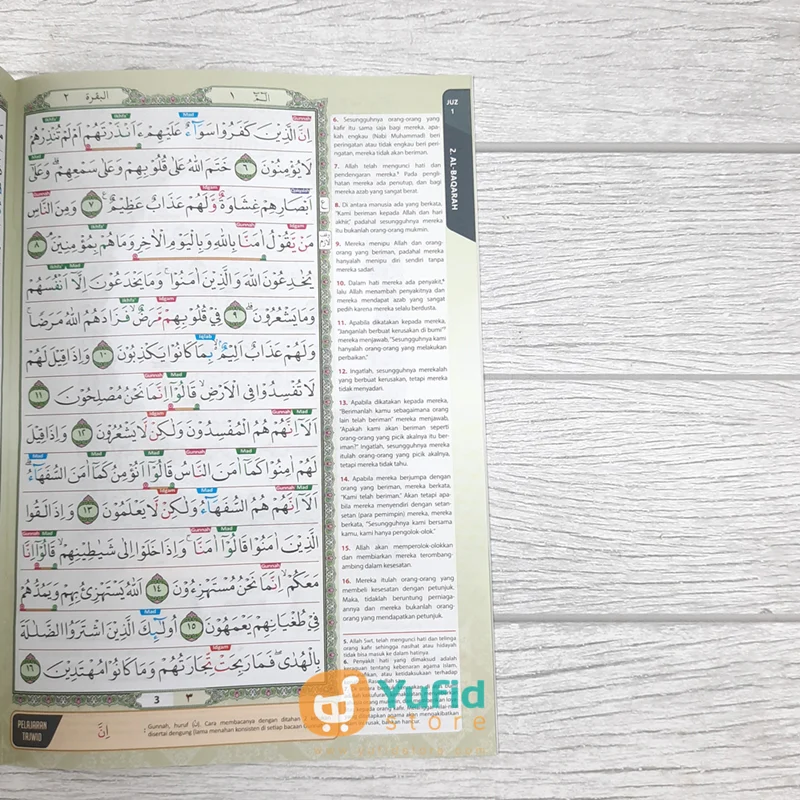 البقرة ٢
الم ١
JUZ
1
2. AL-BAQARAH
اِنَّ الَّذِيْنَ كَفَرُوْا سَوَاۤءٌ عَلَيْهِمْ ءَاَنْذَرْتَهُمْ اَمْ لَمْ تُنْذِرْهُمْ
لَا يُؤْمِنُوْنَ ٦ خَتَمَ اللّٰهُ عَلٰى قُلُوْبِهِمْ وَعَلٰى سَمْعِهِمْۗ وَعَلٰٓى
اَبْصَارِهِمْ غِشَاوَةٌ وَّلَهُمْ عَذَابٌ عَظِيْمٌ ٧ وَمِنَ النَّاسِ
مَنْ يَّقُوْلُ اٰمَنَّا بِاللّٰهِ وَبِالْيَوْمِ الْاٰخِرِ وَمَا هُمْ بِمُؤْمِنِيْنَۘ ٨
يُخٰدِعُوْنَ اللّٰهَ وَالَّذِيْنَ اٰمَنُوْا ۚ وَمَا يَخْدَعُوْنَ اِلَّآ اَنْفُسَهُمْ
وَمَا يَشْعُرُوْنَۗ ٩ فِيْ قُلُوْبِهِمْ مَّرَضٌۙ فَزَادَهُمُ اللّٰهُ مَرَضًاۚ
وَلَهُمْ عَذَابٌ اَلِيْمٌ ۢ بِمَا كَانُوْا يَكْذِبُوْنَ ١٠ وَاِذَا قِيْلَ لَهُمْ
لَا تُفْسِدُوْا فِى الْاَرْضِۙ قَالُوْٓا اِنَّمَا نَحْنُ مُصْلِحُوْنَ ١١
اَلَآ اِنَّهُمْ هُمُ الْمُفْسِدُوْنَ وَلٰكِنْ لَّا يَشْعُرُوْنَ ١٢ وَاِذَا قِيْلَ
لَهُمْ اٰمِنُوْا كَمَآ اٰمَنَ النَّاسُ قَالُوْٓا اَنُؤْمِنُ كَمَآ اٰمَنَ السُّفَهَاۤءُۗ
اَلَآ اِنَّهُمْ هُمُ السُّفَهَاۤءُ وَلٰكِنْ لَّا يَعْلَمُوْنَ ١٣ وَاِذَا لَقُوا
الَّذِيْنَ اٰمَنُوْا قَالُوْٓا اٰمَنَّا ۚ وَاِذَا خَلَوْا اِلٰى شَيٰطِيْنِهِمْۙ قَالُوْٓا اِنَّا
مَعَكُمْۙ اِنَّمَا نَحْنُ مُسْتَهْزِءُوْنَ ١٤ اَللّٰهُ يَسْتَهْزِئُ بِهِمْ وَيَمُدُّهُمْ
فِيْ طُغْيَانِهِمْ يَعْمَهُوْنَ ١٥ اُولٰۤىِٕكَ الَّذِيْنَ اشْتَرَوُا الضَّلٰلَةَ
بِالْهُدٰىۖ فَمَا رَبِحَتْ تِّجَارَتُهُمْ وَمَا كَانُوْا مُهْتَدِيْنَ ١٦
3 ٣
6. Sesungguhnya orang-orang yang
kafir itu sama saja bagi mereka, apa-
kah engkau (Nabi Muhammad) beri
peringatan atau tidak engkau beri peri-
ngatan, mereka tidak akan beriman.
7. Allah telah mengunci hati dan
pendengaran mereka.⁵ Pada pengli-
hatan mereka ada penutup, dan bagi
mereka azab yang sangat berat.
8. Di antara manusia ada yang berkata,
"Kami beriman kepada Allah dan hari
akhir," padahal sesungguhnya mereka
itu bukanlah orang-orang mukmin.
9. Mereka menipu Allah dan orang-
orang yang beriman, padahal mereka
hanyalah menipu diri sendiri tanpa
mereka sadari.
10. Dalam hati mereka ada penyakit,⁶
lalu Allah menambah penyakitnya dan
mereka mendapat azab yang sangat
pedih karena mereka selalu berdusta.
11. Apabila dikatakan kepada mereka,
"Janganlah berbuat kerusakan di bumi"⁷
mereka menjawab, "Sesungguhnya kami
hanyalah orang-orang yang melakukan
perbaikan."
12. Ingatlah, sesungguhnya merekalah
yang berbuat kerusakan, tetapi mereka
tidak menyadari.
13. Apabila dikatakan kepada mereka,
"Berimanlah kamu sebagaimana orang
lain telah beriman" mereka menjawab,
"Apakah kami akan beriman seperti
orang-orang yang picik akalnya itu ber-
iman?" Ingatlah, sesungguhnya mereka
itulah orang-orang yang picik akalnya,
tetapi mereka tidak tahu.
14. Apabila mereka berjumpa dengan
orang yang beriman, mereka berkata,
"Kami telah beriman." Akan tetapi apa-
bila mereka menyendiri dengan setan-
setan (para pemimpin) mereka, mereka
berkata, "Sesungguhnya kami bersama
kamu, kami hanya pengolok-olok."
15. Allah akan memperolok-olokkan
dan membiarkan mereka terombang-
ambing dalam kesesatan.
16. Mereka itulah orang-orang yang
membeli kesesatan dengan petunjuk.
Maka, tidaklah beruntung perniaga-
annya dan mereka bukanlah orang-
orang yang mendapatkan petunjuk.
5. Allah Swt. telah mengunci hati dan telinga
orang kafir sehingga nasihat atau hidayah
tidak bisa masuk ke dalam hatinya.
6. Penyakit hati yang dimaksud adalah
keraguan tentang kebenaran agama Islam,
atau ketidaksetiaan terhadap
PELAJARAN
TAJWID
اِنَّ
Gunnah, huruf
Cara membacanya dengan ditahan
disertai dengung (lama menahan konsisten di setiap bacaan
Yufid
store